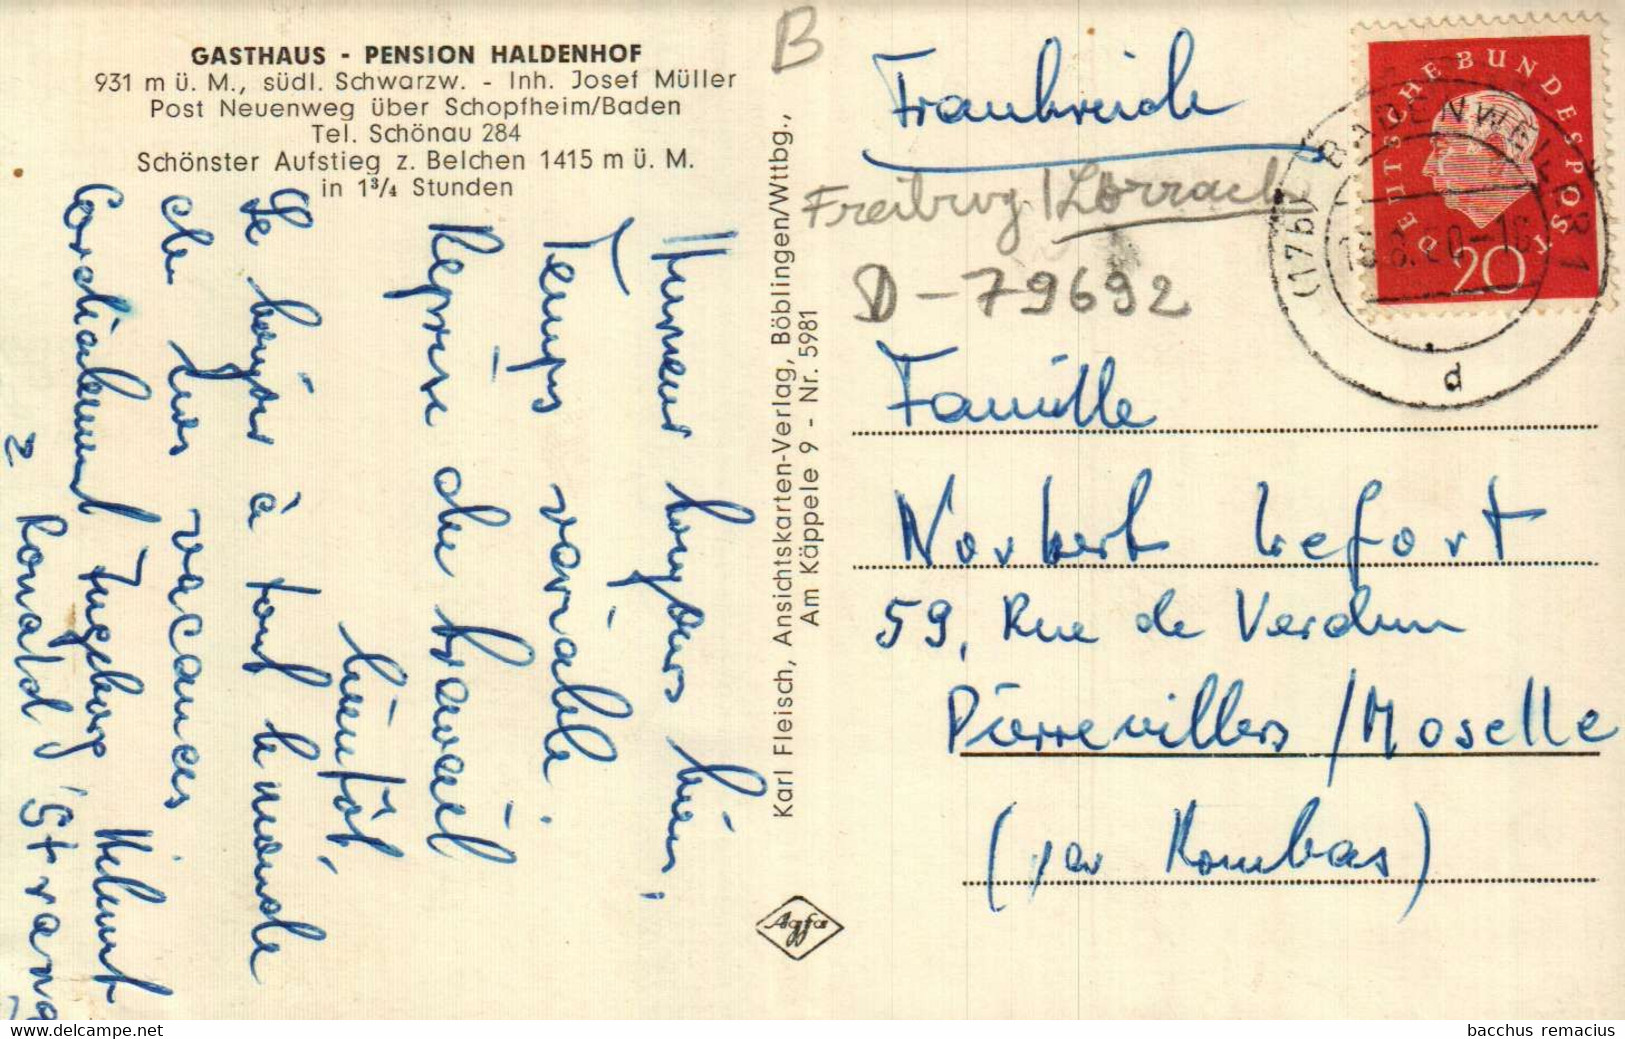 GASTHAUS - PENSION HALDENHOF
931 m ü. M., südl. Schwarzw. - Inh. Josef Müller
Post Neuenweg über Schopfheim/Baden
Tel. Schönau 284
Schönster Aufstieg z. Belchen 1415 m ü. M.
in 1³/₄ Stunden
Humeur toujours bien,
Temps variable.
Reprise du travail
bientôt.
Le bonjour à tout le monde
de nos vacances
Cordialement Ingeborg Helmut
2 Ronald Strang
Karl Fleisch, Ansichtskarten-Verlag, Böblingen/Wttbg.,
Am Käppele 9 - Nr. 5981
Agfa
B
Frankreich
Freiburg / Lörrach
D-79692
Famille
Norbert Lefort
59, Rue de Verdun
Pierrevillers / Moselle
(par Rombas)
DEUTSCHE BUNDESPOST
20
(17b) BADENWEILER 1
d
bacchus remacius